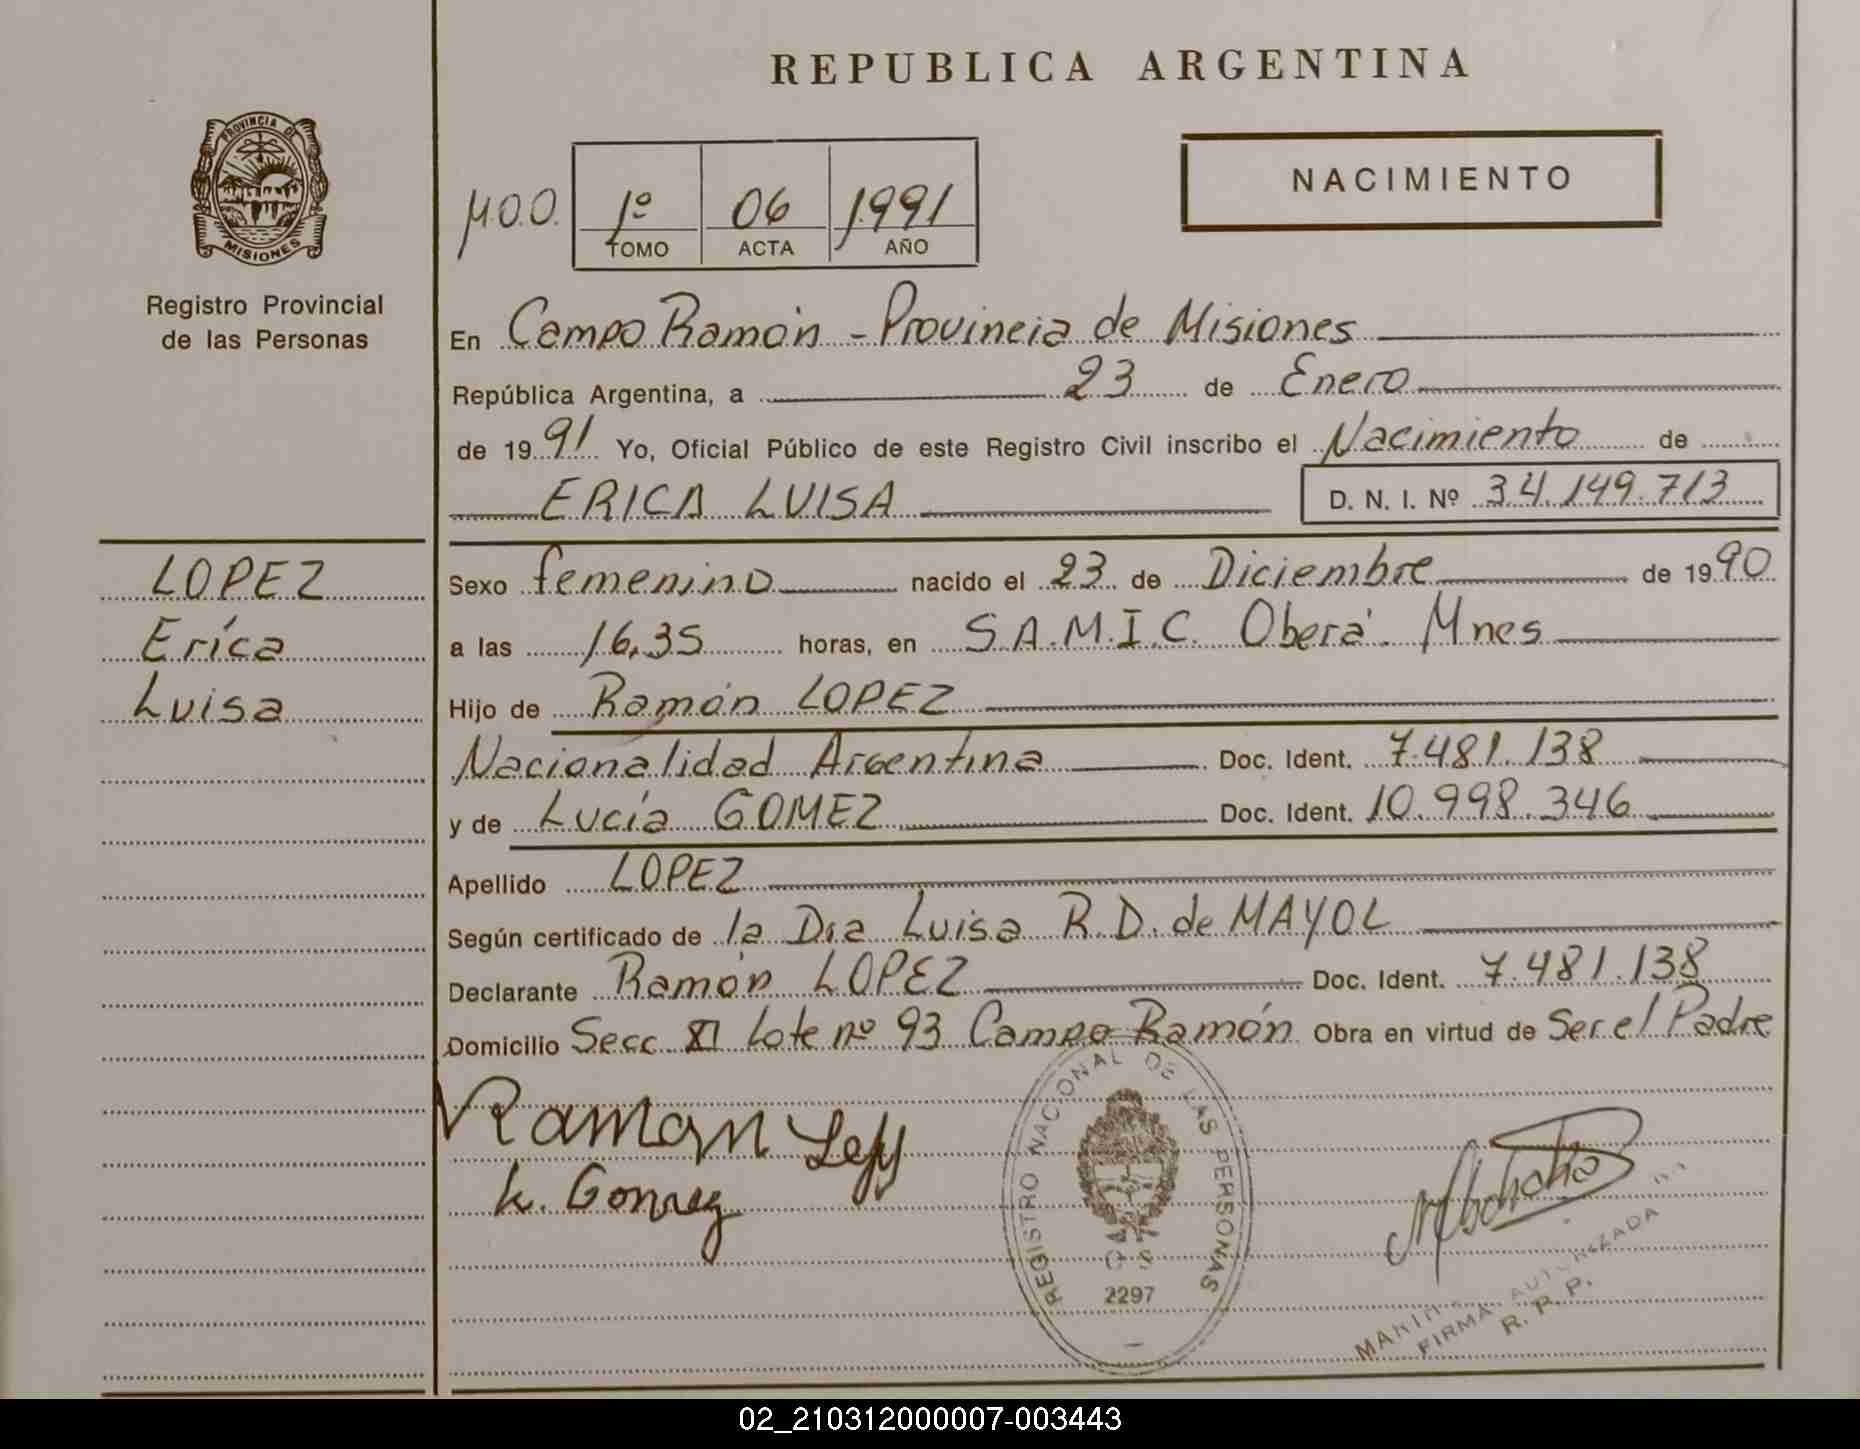 REPUBLICA ARGENTINA
PROVINCIA DE
MISIONES
Registro Provincial
de las Personas
NACIMIENTO
M.O.O. 1º 06 1991
TOMO ACTA AÑO
En Campo Ramón - Provincia de Misiones
República Argentina, a 23 de Enero
de 1991 Yo, Oficial Público de este Registro Civil inscribo el Nacimiento de
ERICA LUISA D. N. I. Nº 34.149.713
LOPEZ
Erica
Luisa
Sexo femenino nacido el 23 de Diciembre de 1990
a las 16,35 horas, en S.A.M.I.C. Oberá. Mnes
Hijo de Ramón LOPEZ
Nacionalidad Argentina Doc. Ident. 7.481.138
y de Lucía GOMEZ Doc. Ident. 10.998.346
Apellido LOPEZ
Según certificado de la Dra Luisa R.D. de MAYOL
Declarante Ramón LOPEZ Doc. Ident. 7.481.138
Domicilio Secc. XI Lote nº 93 Campo Ramón Obra en virtud de Ser el Padre
Raman
REGISTRO NACIONAL DE LAS PERSONAS
2297
FIRMA AUTORIZADA
R. P. P.
02_210312000007-003443